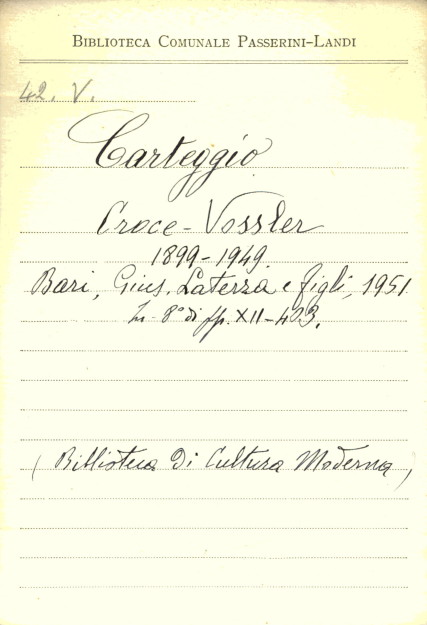 BIBLIOTECA COMUNALE PASSERINI-LANDI
42. V.
Carteggio
Croce-Vossler
1899-1949
Bari, Gius. Laterza e figli, 1951
In 8° di pp. XII-403.
(Biblioteca Di Cultura Moderna)